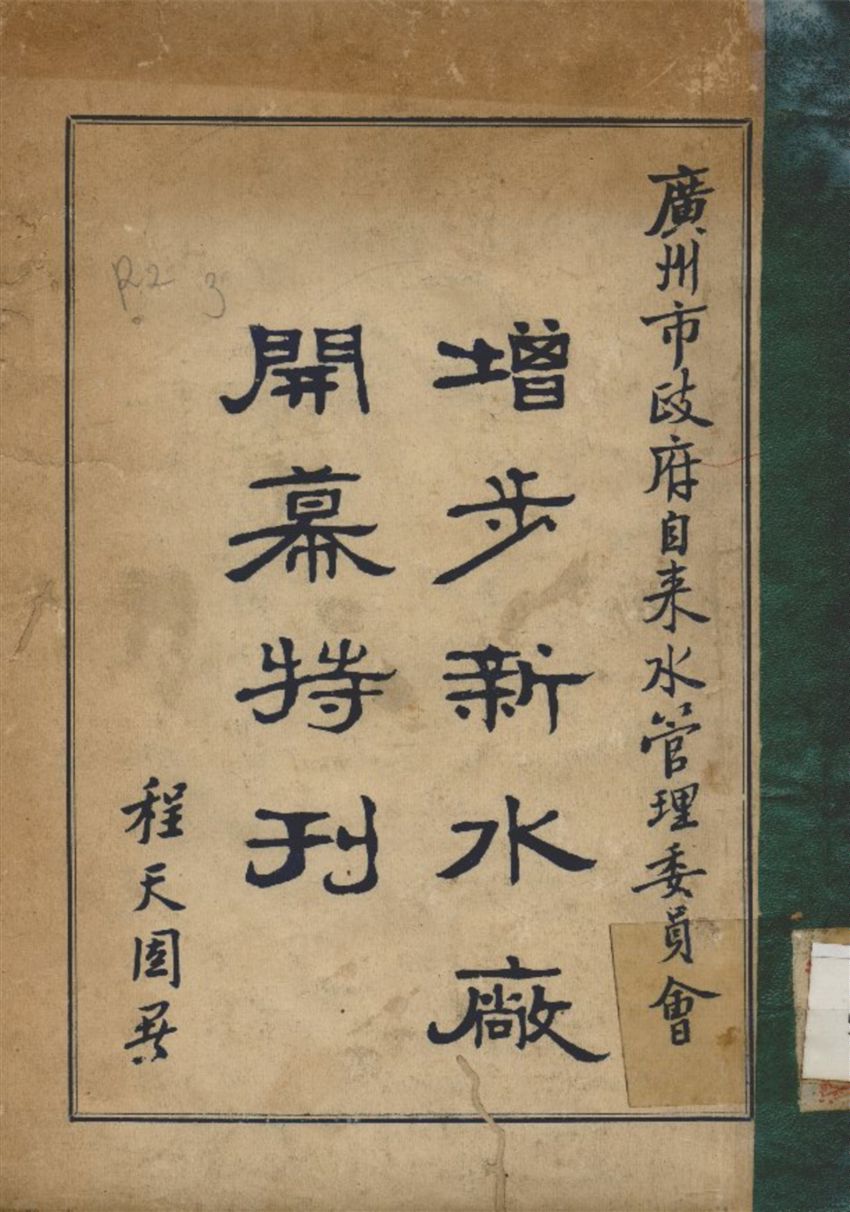 廣州市政府自来水管理委員會
增步新水廠
開幕特刊
程天固
R2 3